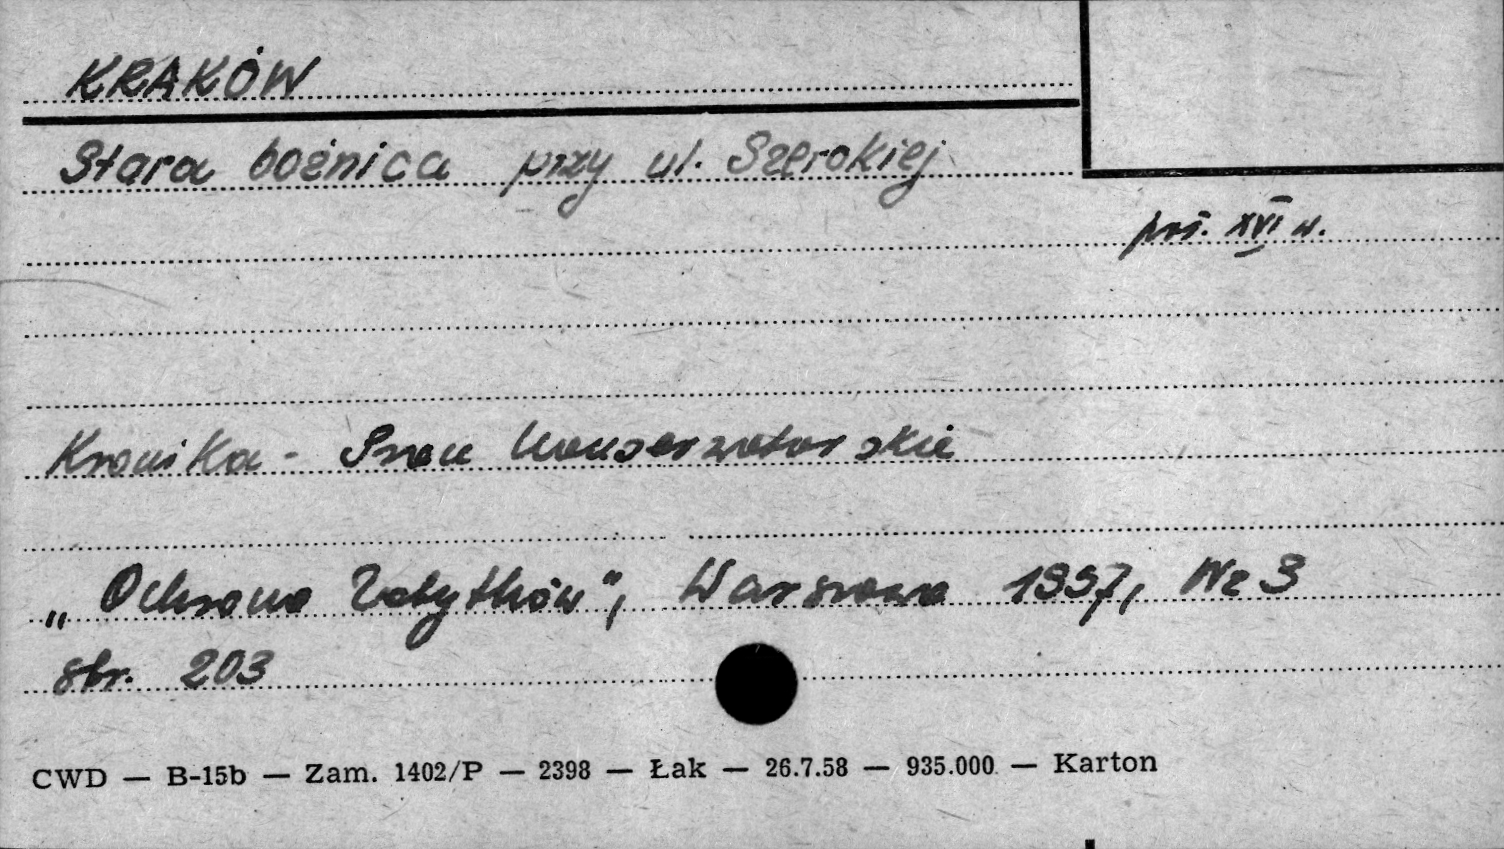 KRAKÓW
Stara bożnica przy ul. Szerokiej
poł. XVI w.
Kronika - Prace konserwatorskie
„Ochrona Zabytków", Warszawa 1957, Nr 3
str. 203
CWD — B-15b — Zam. 1402/P — 2398 — Łak — 26.7.58 — 935.000 — Karton